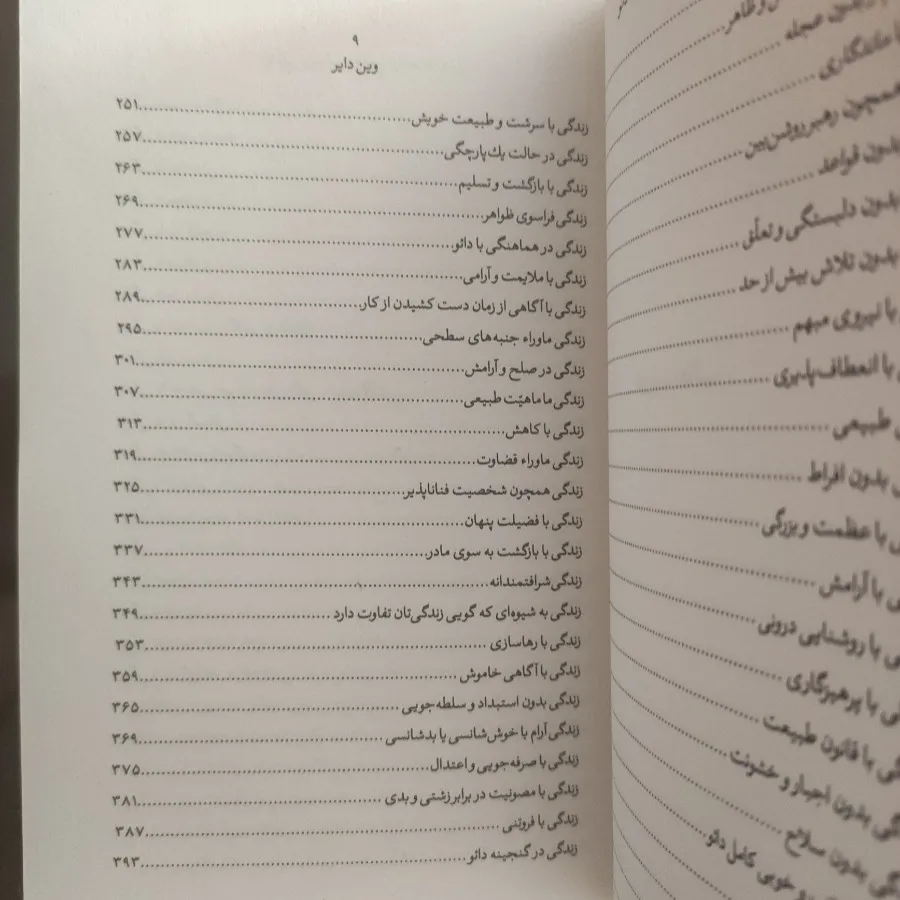 ۹
وین دایر
زندگی با سرشت و طبیعت خویش ۲۵۱
زندگی در حالت یك‌پارچگی ۲۵۷
زندگی با بازگشت و تسلیم ۲۶۳
زندگی فراسوی ظواهر ۲۶۹
زندگی در هماهنگی با دائو ۲۷۷
زندگی با ملایمت و آرامی ۲۸۳
زندگی با آگاهی از زمان دست کشیدن از کار ۲۸۹
زندگی ماوراء جنبه‌های سطحی ۲۹۵
زندگی در صلح و آرامش ۳۰۱
زندگی ما ماهیّت طبیعی ۳۰۷
زندگی با کاهش ۳۱۳
زندگی ماوراء قضاوت ۳۱۹
زندگی همچون شخصیت فناناپذیر ۳۲۵
زندگی با فضیلت پنهان ۳۳۱
زندگی با بازگشت به سوی مادر ۳۳۷
زندگی شرافتمندانه ۳۴۳
زندگی به شیوه‌ای که گویی زندگی‌تان تفاوت دارد ۳۴۹
زندگی با رهاسازی ۳۵۳
زندگی با آگاهی خاموش ۳۵۹
زندگی بدون استبداد و سلطه‌جویی ۳۶۵
زندگی آرام با خوش‌شانسی یا بدشانسی ۳۶۹
زندگی با صرفه‌جویی و اعتدال ۳۷۵
زندگی با مصونیت در برابر زشتی و بدی ۳۸۱
زندگی با فروتنی ۳۸۷
زندگی در گنجینه دائو ۳۹۳
و ظاهر
بدون عجله
ماندگاری
همچون رهبر روشن‌بین
بدون قواعد
بدون دلبستگی و تعلّق
بدون تلاش بیش از حد
با نیروی مبهم
با انعطاف‌پذیری
طبیعی
بدون افراط
با عظمت و بزرگی
با آرامش
با روشنایی درونی
با پرهیزگاری
با قانون طبیعت
بدون اجبار و خشونت
بدون سلاح
و خوبی کامل دائو